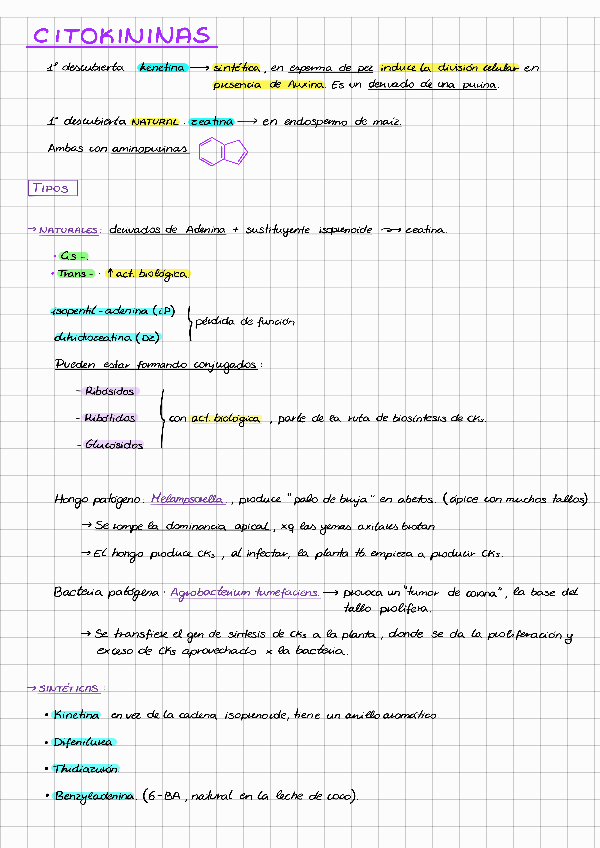 CITOKININAS
1ª descubierta kenetina → sintética, en esperma de pez induce la división celular en
presencia de Auxina. Es un derivado de una purina.
1ª descubierta NATURAL · zeatina → en endospermo de maíz.
Ambas son aminopurinas
TIPOS
→ NATURALES: derivados de Adenina + sustituyente isoprenoide → zeatina.
· Cis-.
· Trans- · ↑ act. biológica.
isopentil-adenina (iP)
pérdida de función
dihidrozeatina (DZ)
Pueden estar formando conjugados:
- Ribósidos
- Ribótidos
con act. biológica, parte de la ruta de biosíntesis de CKs.
- Glucósidos
Hongo patógeno. Melampsorella, produce "palo de bruja" en abetos. (ápice con muchos tallos)
→ Se rompe la dominancia apical, xq las yemas axilares brotan
→ El hongo produce CKs, al infectar, la planta tb empieza a producir CKs.
Bacteria patógena · Agrobacterium tumefaciens. → provoca un "tumor de corona", la base del
tallo prolifera.
→ Se transfiere el gen de síntesis de CKs a la planta, donde se da la proliferación y
exceso de CKs aprovechado x la bacteria.
→ SINTÉTICAS:
• Kinetina en vez de la cadena isoprenoide, tiene un anillo aromático
• Difenilurea
• Thidiazurón
• Benzyladenina. (6-BA, natural en la leche de coco).